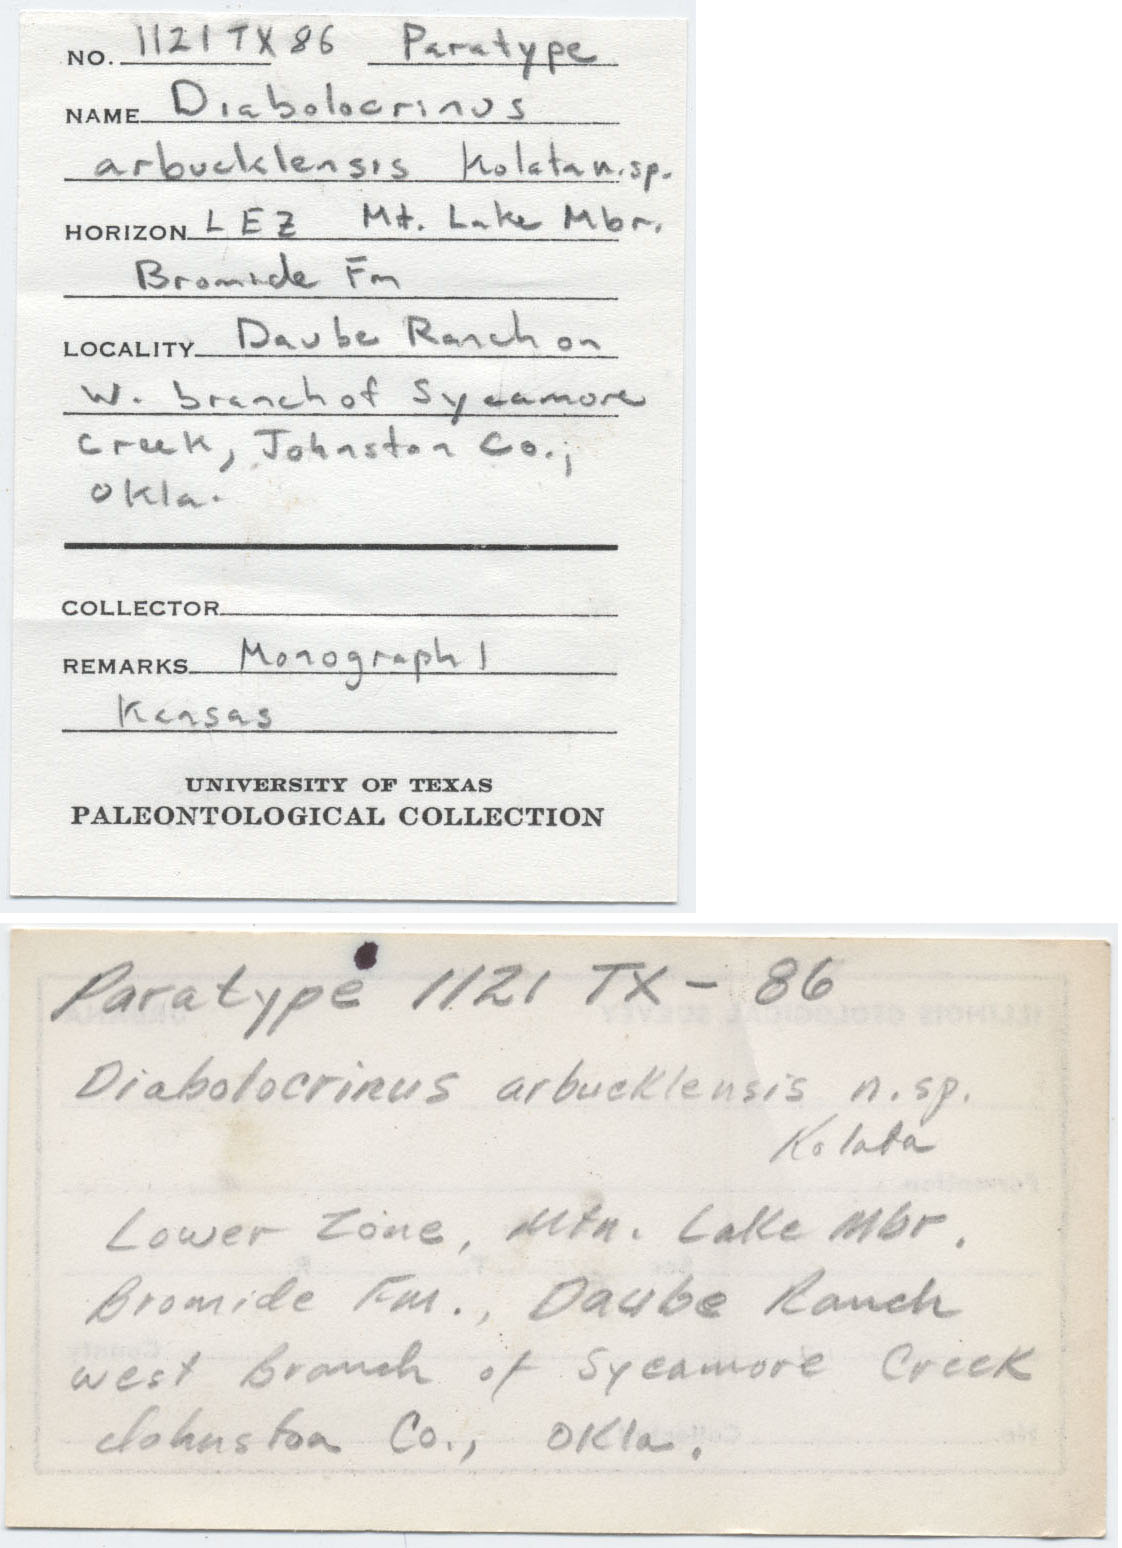 NO. 1121 TX 86 Paratype
NAME Diabolocrinus
arbucklensis Kolata n.sp.
HORIZON LEZ Mt. Lake Mbr.
Bromide Fm
LOCALITY Daube Ranch on
W. branch of Sycamore
Creek, Johnston Co.,
Okla.
COLLECTOR
REMARKS Monograph 1
Kansas
UNIVERSITY OF TEXAS
PALEONTOLOGICAL COLLECTION
Paratype 1121 TX - 86
Diabolocrinus arbucklensis n.sp.
Kolata
Lower Zone, Mtn. Lake Mbr.
Bromide Fm., Daube Ranch
west Branch of Sycamore Creek
Johnston Co., Okla.
ILLINOIS GEOLOGICAL SURVEY URBANA
Formation
County
No. Collector